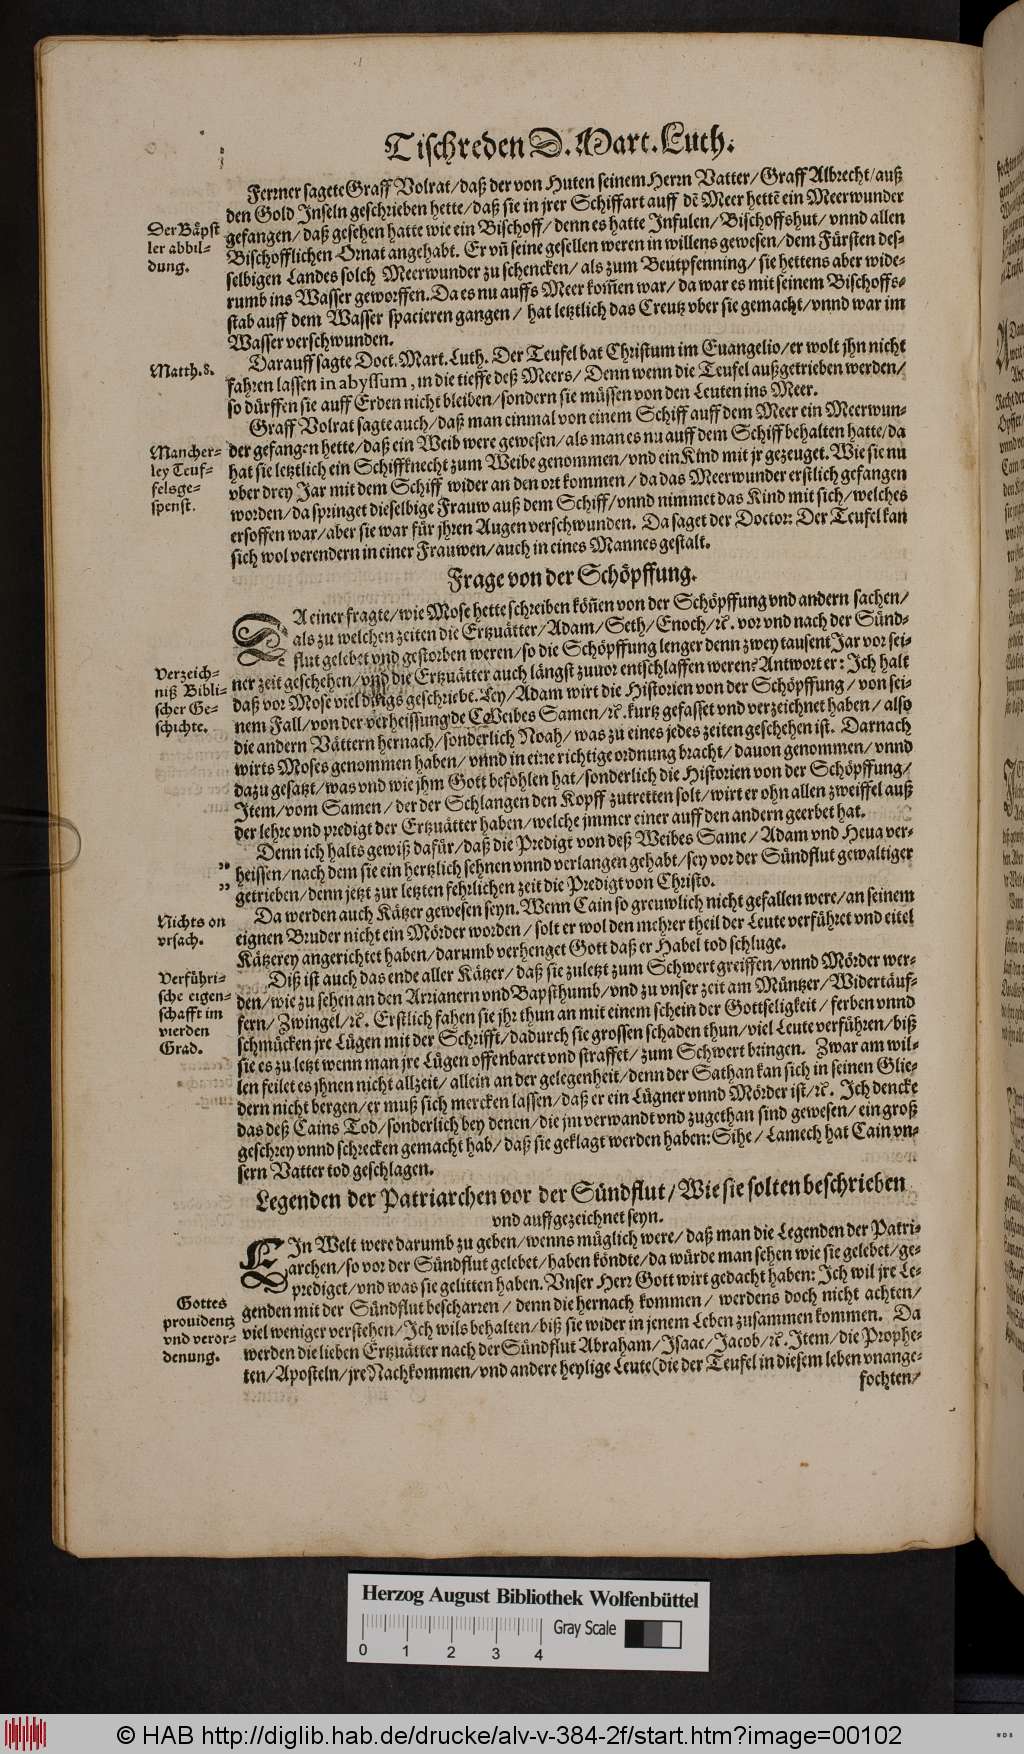 Tischreden D. Mart. Luth.
Ferrner sagete Graff Volrat/daß der von Huten seinem Herrn Vatter/Graff Albrecht/auß
den Gold Inseln geschrieben hette/daß sie in jrer Schiffart auff dē Meer hettē ein Meerwunder
gefangen/daß gesehen hatte wie ein Bischoff/denn es hatte Infulen/Bischoffshut/vnnd allen
Bischofflichen Ornat angehabt. Er vñ seine gesellen weren in willens gewesen/dem Fürsten des-
selbigen Landes solch Meerwunder zu schencken/als zum Beutpfenning/sie hettens aber wide-
rumb ins Wasser geworffen. Da es nu auffs Meer kom̃en war/da war es mit seinem Bischoffs-
stab auff dem Wasser spacieren gangen/hat letztlich das Creutz vber sie gemacht/vnnd war im
Wasser verschwunden.
Der Båpst
ler abbil-
dung.
Darauff sagte Doct. Mart. Luth. Der Teufel bat Christum im Euangelio/er wolt jhn nicht
fahren lassen in abyssum, in die tieffe deß Meers/Denn wenn die Teufel außgetrieben werden/
so dürffen sie auff Erden nicht bleiben/sondern sie müssen von den Leuten ins Meer.
Matth. 8.
Graff Volrat sagte auch/daß man einmal von einem Schiff auff dem Meer ein Meerwun-
der gefangen hette/daß ein Weib were gewesen/als man es nu auff dem Schiff behalten hatte/da
hat sie letztlich ein Schiffknecht zum Weibe genommen/vnd ein Kind mit jr gezeuget. Wie sie nu
vber drey Jar mit dem Schiff wider an den ort kommen/da das Meerwunder erstlich gefangen
worden/da springet dieselbige Frauw auß dem Schiff/vnnd nimmet das Kind mit sich/welches
ersoffen war/aber sie war für jhren Augen verschwunden. Da saget der Doctor: Der Teufel kan
sich wol verendern in einer Frauwen/auch in eines Mannes gestalt.
Mancher-
ley Teuf-
felsge-
spenst.
Frage von der Schöpffung.
DA einer fragte/wie Mose hette schreiben köñen von der Schöpffung vnd andern sachen/
als zu welchen zeiten die Ertzuätter/Adam/Seth/Enoch/ꝛc. vor vnd nach der Sünd-
flut gelebet vnd gestorben weren/so die Schöpffung lenger denn zwey tausent Jar vor sei-
ner zeit geschehen/vnd die Ertzuätter auch längst zuuor entschlaffen weren? Antwort er: Ich halt
daß vor Mose viel dings geschriebt. Ley/Adam wirt die Historien von der Schöpffung/von sei-
nem Fall/von der verheissung de Weibes Samen/ꝛc. kurtz gefasset vnd verzeichnet haben/also
die andern Vättern hernach/sonderlich Noah/was zu eines jedes zeiten geschehen ist. Darnach
wirts Moses genommen haben/vnnd in eine richtige ordnung bracht/dauon genommen/vnnd
dazu gesatzt/was vnd wie jhm Gott befohlen hat/sonderlich die Historien von der Schöpffung/
Item/vom Samen/der der Schlangen den Kopff zutretten solt/wirt er ohn allen zweiffel auß
der lehre vnd predigt der Ertzuätter haben/welche jmmer einer auff den andern geerbet hat.
Verzeich-
niß Bibli-
scher Ge-
schichte.
Denn ich halts gewiß dafür/daß die Predigt von deß Weibes Same/Adam vnd Heua ver-
heissen/nach dem sie ein hertzlich sehnen vnnd verlangen gehabt/sey vor der Sündflut gewaltiger
getrieben/denn jetzt zur letzten fehrlichen zeit die Predigt von Christo.
Da werden auch Kätzer gewesen seyn. Wenn Cain so greuwlich nicht gefallen were/an seinem
eignen Bruder nicht ein Mörder worden/solt er wol den mehrer theil der Leute verführet vnd eitel
Kätzerey angerichtet haben/darumb verhenget Gott daß er Habel tod schluge.
Nichts on
vrsach.
Diß ist auch das ende aller Kätzer/daß sie zuletzt zum Schwert greiffen/vnnd Mörder wer-
den/wie zu sehen an den Arrianern vnd Bapsthumb/vnd zu vnser zeit am Müntzer/Widertäuf-
fern/Zwingel/ꝛc. Erstlich fahen sie jhr thun an mit einem schein der Gottseligkeit/ferben vnnd
schmücken jre Lügen mit der Schrifft/dadurch sie grossen schaden thun/viel Leute verführen/biß
sie es zu letzt wenn man jre Lügen offenbaret vnd straffet/zum Schwert bringen. Zwar am wil-
len feilet es jhnen nicht allzeit/allein an der gelegenheit/denn der Sathan kan sich in seinen Glie-
dern nicht bergen/er muß sich mercken lassen/daß er ein Lügner vnnd Mörder ist/ꝛc. Ich dencke
das deß Cains Tod/sonderlich bey denen/die jm verwandt vnd zugethan sind gewesen/ein groß
geschrey vnnd schrecken gemacht hab/daß sie geklagt werden haben: Sihe/Lamech hat Cain vn-
sern Vatter tod geschlagen.
Verführi-
sche eigen-
schafft im
vierden
Grad.
Legenden der Patriarchen vor der Sündflut/Wie sie solten beschrieben
vnd auffgezeichnet seyn.
EIn Welt were darumb zu geben/wenns müglich were/daß man die Legenden der Patri-
archen/so vor der Sündflut gelebet/haben köndte/da würde man sehen wie sie gelebet/ge-
prediget/vnd was sie gelitten haben. Vnser Herr Gott wirt gedacht haben: Ich wil jre Le-
genden mit der Sündflut bescharren/denn die hernach kommen/werdens doch nicht achten/
viel weniger verstehen/Ich wils behalten/biß sie wider in jenem Leben zusammen kommen. Da
werden die lieben Ertzuätter nach der Sündflut Abraham/Isaac/Jacob/ꝛc. Item/die Prophe-
ten/Aposteln/jre Nachkommen/vnd andere heylige Leute (die der Teufel in diesem leben vnange-
fochten/
Gottes
prouidentz
vnd veror-
denung.
Herzog August Bibliothek Wolfenbüttel
0 1 2 3 4
Gray Scale
© HAB http://diglib.hab.de/drucke/alv-v-384-2f/start.htm?image=00102